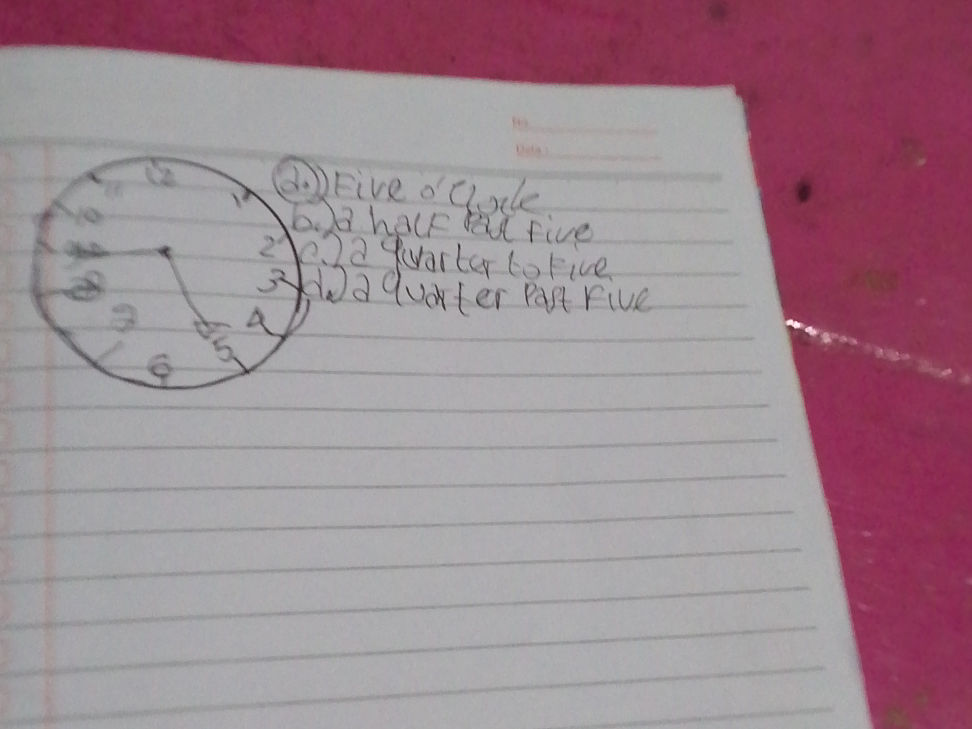 12
11
1
10
2
3
8
7
4
5
6
a.) Five o'Clock
b.) a half Past Five
c.) a quarter to Five
d.) a quarter Past Five
No.
Date: